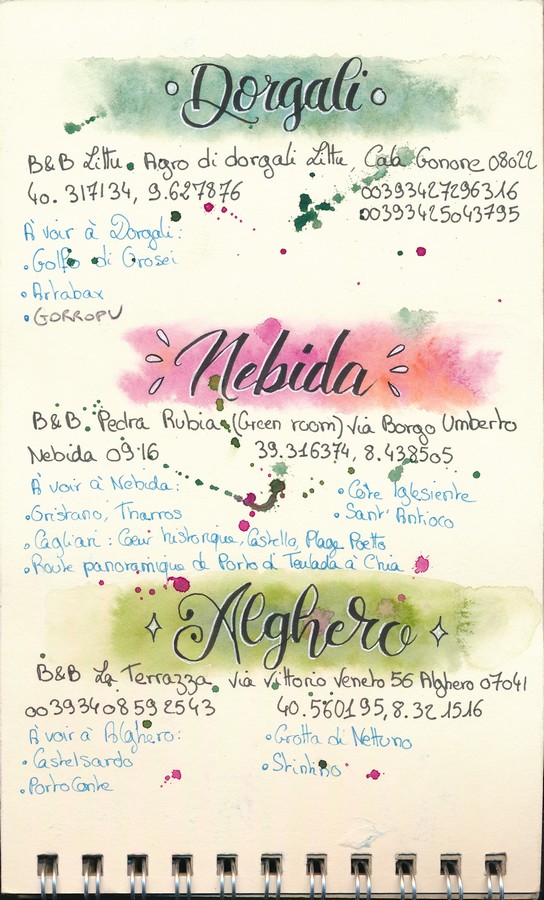 Dorgali
B&B Littu. Agro di dorgali Littu Cala Gonone 08022
40.317134, 9.627876 00393427296316
00393425043795
À voir à Dorgali:
• Golfo di Orosei
• Artabax
• GORROPU
Nebida
B&B. Pedra Rubia (Green room) via Borgo Umberto
Nebida 0916 39.316374, 8.438505
À voir à Nebida: • Côte Iglesiente
• Oristano, Tharros • Sant' Antioco
• Cagliari : Cœur historique, Castello, Plage Poetto
• Route panoramique de Porto di Teulada à Chia
Alghero
B&B La Terrazza via Vittorio Veneto 56 Alghero 07041
00393408592543 40.560195, 8.321516
À voir à Alghero: • Grotta di Nettuno
• Castelsardo • Stintino
• Porto Conte